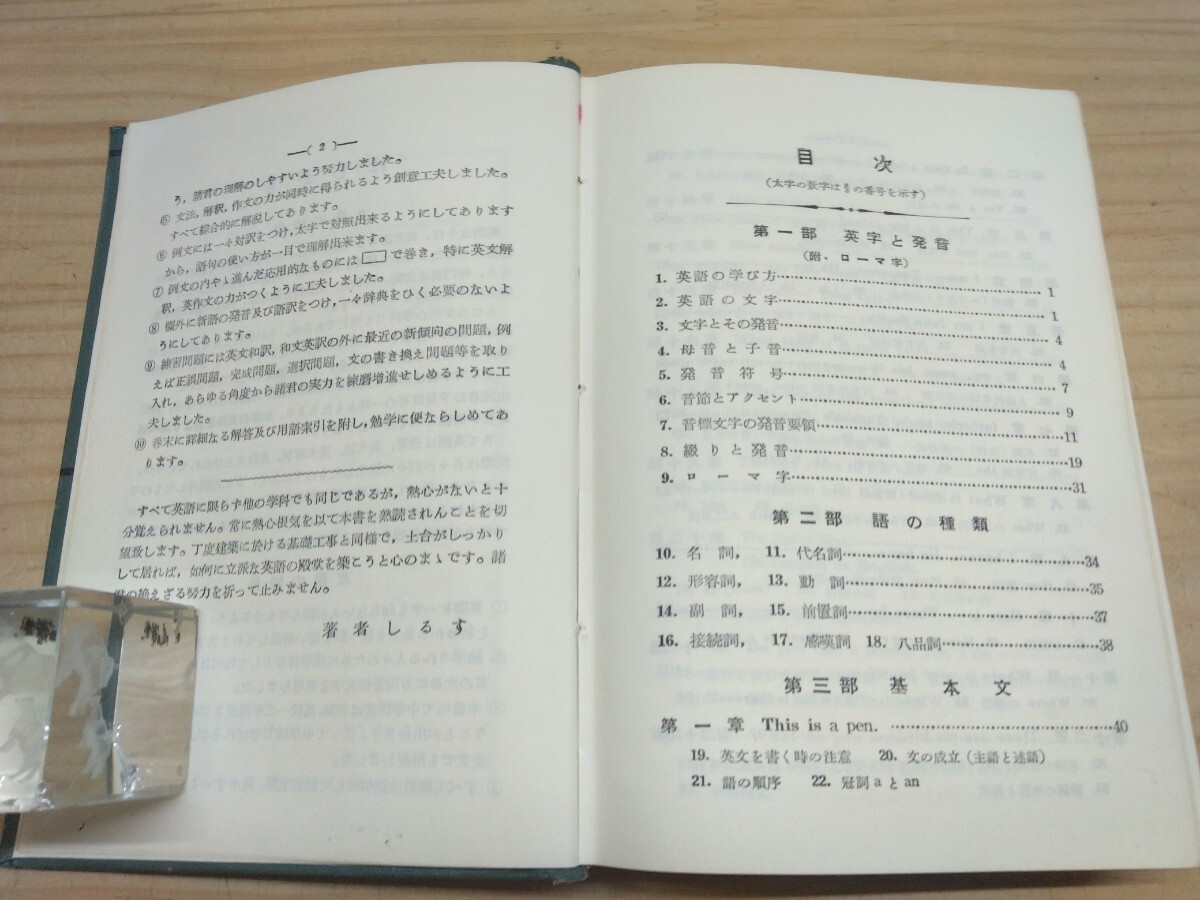 —( 2 )—
う，諸君の理解のしやすいよう努力しました。
⑤ 文法，解釈，作文の力が同時に得られるよう創意工夫しました。
すべて綜合的に解説してあります。
⑥ 例文には一々対訳をつけ，太字で対照出来るようにしてあります
から，語句の使い方が一目で理解出来ます。
⑦ 例文の内やゝ進んだ応用的なものには□で巻き，特に英文解
釈，英作文の力がつくように工夫しました。
⑧ 欄外に新語の発音及び語訳をつけ，一々辞典をひく必要のないよ
うにしてあります。
⑨ 練習問題には英文和訳，和文英訳の外に最近の新傾向の問題，例
えば正誤問題，完成問題，選択問題，文の書き換え問題等を取り
入れ，あらゆる角度から諸君の実力を練磨増進せしめるように工
夫しました。
⑩ 巻末に詳細なる解答及び用語索引を附し，勉学に便ならしめてあ
ります。
すべて英語に限らず他の学科でも同じであるが，熱心がないと十
分覚えられません。常に熱心根気を以て本書を熟読されんことを切
望致します。丁度建築に於ける基礎工事と同様で，土台がしっかり
して居れば，如何に立派な英語の殿堂を築こうと心のまゝです。諸
君の絶えざる努力を祈って止みません。
著者しるす
目次
(太字の数字は§の番号を示す)
第一部 英字と発音
(附．ローマ字)
1. 英語の学び方……1
2. 英語の文字……1
3. 文字とその発音……4
4. 母音と子音……4
5. 発音符号……7
6. 音節とアクセント……9
7. 音標文字の発音要領……11
8. 綴りと発音……19
9. ローマ字……31
第二部 語の種類
10. 名詞， 11. 代名詞……34
12. 形容詞， 13. 動詞……35
14. 副詞， 15. 前置詞……37
16. 接続詞， 17. 感嘆詞 18. 八品詞……38
第三部 基本文
第一章 This is a pen. ……40
19. 英文を書く時の注意 20. 文の成立(主語と述語)
21. 語の順序 22. 冠詞 a と an